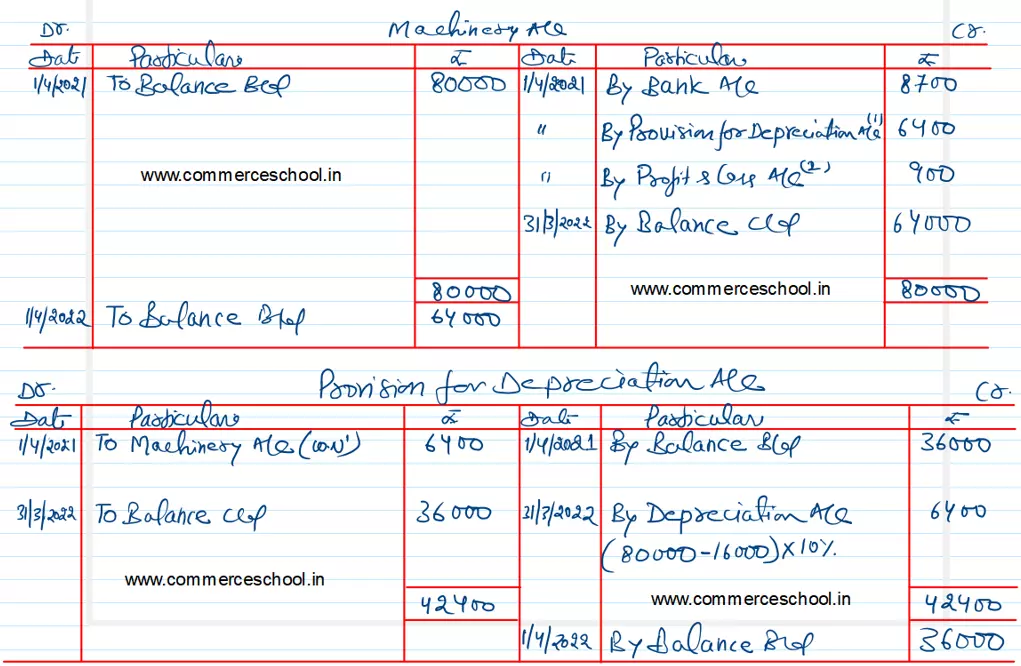 Dr. Machinery A/c Cr.
Date Particulars ₹ Date Particulars ₹
1/4/2021 To Balance B/d 80000 1/4/2021 By Bank A/c 8700
" By Provision for Depreciation A/c (1) 6400
www.commerceschool.in " By Profit & Loss A/c (2) 900
31/3/2022 By Balance c/d 64000
80000 www.commerceschool.in 80000
1/4/2022 To Balance B/d 64000
Dr. Provision for Depreciation A/c Cr.
Date Particulars ₹ Date Particulars ₹
1/4/2021 To Machinery A/c 6400 1/4/2021 By Balance B/d 36000
31/3/2022 To Balance c/d 36000 31/3/2022 By Depreciation A/c 6400
(80000-16000)×10%.
www.commerceschool.in
42400 www.commerceschool.in 42400
1/4/2022 By Balance B/d 36000